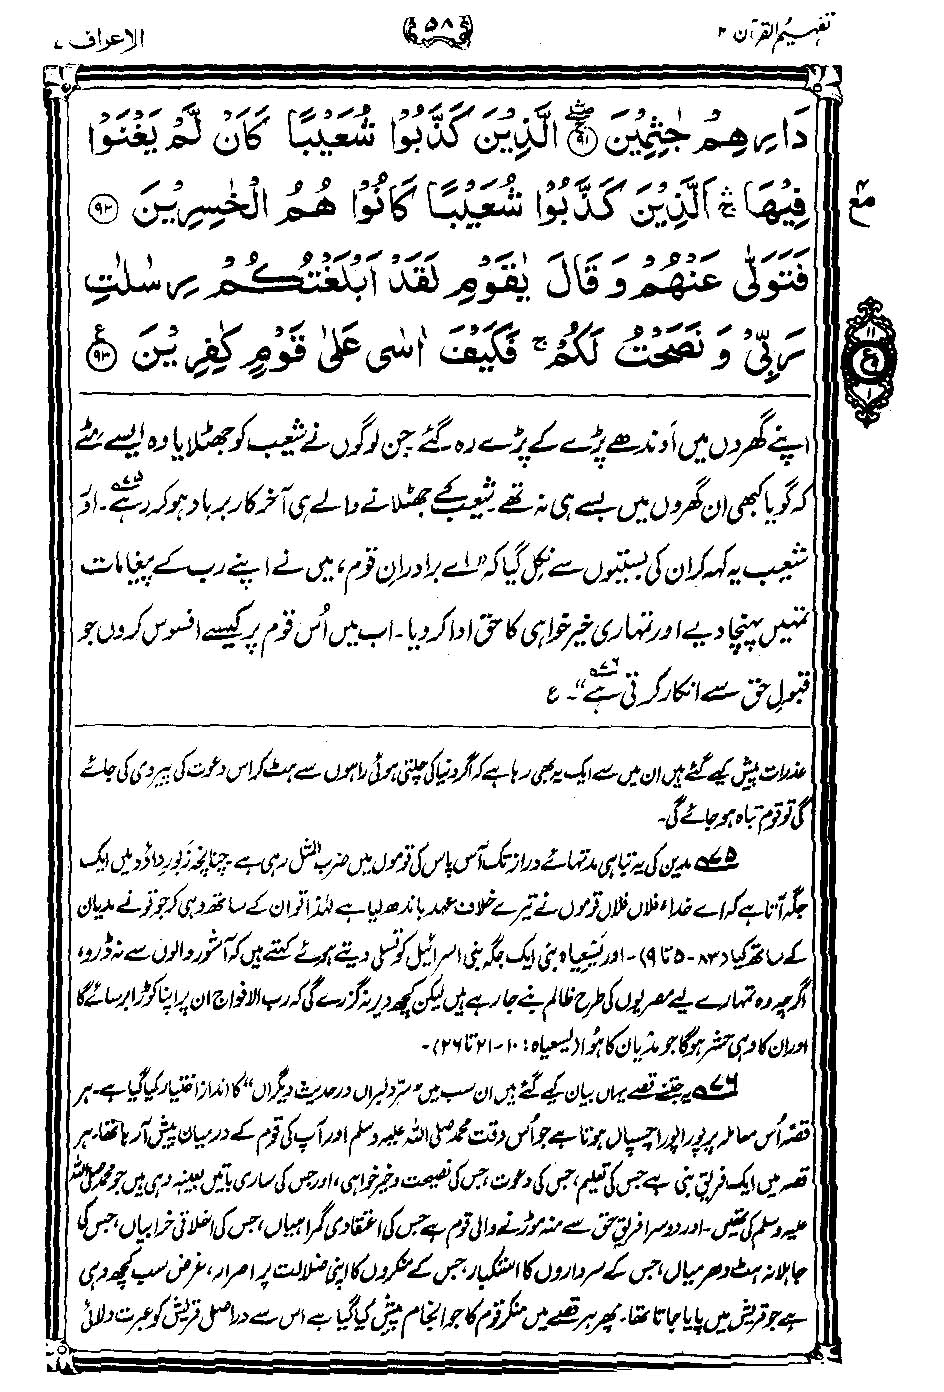 تفہیم القرآن ۲
۵۸
الاعراف ۷
دَارِهِمْ جٰثِمِيْنَ ﴿۹۱﴾ الَّذِيْنَ كَذَّبُوْا شُعَيْبًا كَاَنْ لَّمْ يَغْنَوْا
فِيْهَا ۛۚ اَلَّذِيْنَ كَذَّبُوْا شُعَيْبًا كَانُوْا هُمُ الْخٰسِرِيْنَ ﴿۹۲﴾
فَتَوَلّٰى عَنْهُمْ وَقَالَ يٰقَوْمِ لَقَدْ اَبْلَغْتُكُمْ رِسٰلٰتِ
رَبِّيْ وَنَصَحْتُ لَكُمْ ۚ فَكَيْفَ اٰسٰى عَلٰى قَوْمٍ كٰفِرِيْنَ ﴿۹۳﴾ ع
مع
۱۱
ع
۱
اپنے گھروں میں اوندھے پڑے کے پڑے رہ گئے جن لوگوں نے شعیب کو جھٹلایا وہ ایسے مٹے
کہ گویا کبھی ان گھروں میں بسے ہی نہ تھے۔ شعیب کے جھٹلانے والے ہی آخر کار برباد ہو کر رہے۷۵۔ اور
شعیب یہ کہہ کر ان کی بستیوں سے نکل گیا کہ "اے برادرانِ قوم، میں نے اپنے رب کے پیغامات
تمہیں پہنچا دیے اور تمہاری خیر خواہی کا حق ادا کر دیا۔ اب میں اُس قوم پر کیسے افسوس کروں جو
قبولِ حق سے انکار کرتی ہے۷۶"۔ ع
عذرات پیش کیے گئے ہیں ان میں سے ایک یہ بھی رہا ہے کہ اگر دنیا کی چلتی ہوئی راہوں سے ہٹ کر اس دعوت کی پیروی کی جائے
گی تو قوم تباہ ہو جائے گی۔
۷۵ مدین کی یہ تباہی مدتہائے دراز تک آس پاس کی قوموں میں ضرب المثل رہی ہے۔ چنانچہ زبورِ داؤد میں ایک
جگہ آتا ہے کہ اے خدا، فلاں فلاں قوموں نے تیرے خلاف عہد باندھ لیا ہے لہٰذا تو ان کے ساتھ وہی کر جو تو نے مدیان
کے ساتھ کیا (۸۳-۵ تا ۹)۔ اور یسعیاہ نبی ایک جگہ بنی اسرائیل کو تسلی دیتے ہوئے کہتے ہیں کہ آشور والوں سے نہ ڈرو،
اگرچہ وہ تمہارے لیے مصریوں کی طرح ظالم بنے جا رہے ہیں لیکن کچھ دیر نہ گزرے گی کہ رب الافواج ان پر اپنا کوڑا برسائے گا
اور ان کا وہی حشر ہوگا جو مدیان کا ہوا (یسعیاہ: ۱۰-۲۱ تا ۲۶)۔
۷۶ یہ جتنے قصے یہاں بیان کیے گئے ہیں ان سب میں "سرِّ دلبراں در حدیثِ دیگراں" کا انداز اختیار کیا گیا ہے۔ ہر
قصہ اُس معاملہ پر پورا پورا چسپاں ہوتا ہے جو اُس وقت محمد صلی اللہ علیہ وسلم اور آپ کی قوم کے درمیان پیش آ رہا تھا۔ ہر
قصہ میں ایک فریق نبی ہے جس کی تعلیم، جس کی دعوت، جس کی نصیحت و خیر خواہی، اور جس کی ساری باتیں بعینہٖ وہی ہیں جو محمد صلی اللہ
علیہ وسلم کی تھیں۔ اور دوسرا فریق حق سے منہ موڑنے والی قوم ہے جس کی اعتقادی گمراہیاں، جس کی اخلاقی خرابیاں، جس کی
جاہلانہ ہٹ دھرمیاں، جس کے سرداروں کا استکبار، جس کے منکروں کا اپنی ضلالت پر اصرار، غرض سب کچھ وہی
ہے جو قریش میں پایا جاتا تھا۔ پھر ہر قصے میں منکر قوم کا جو انجام پیش کیا گیا ہے اس سے دراصل قریش کو عبرت دلائی